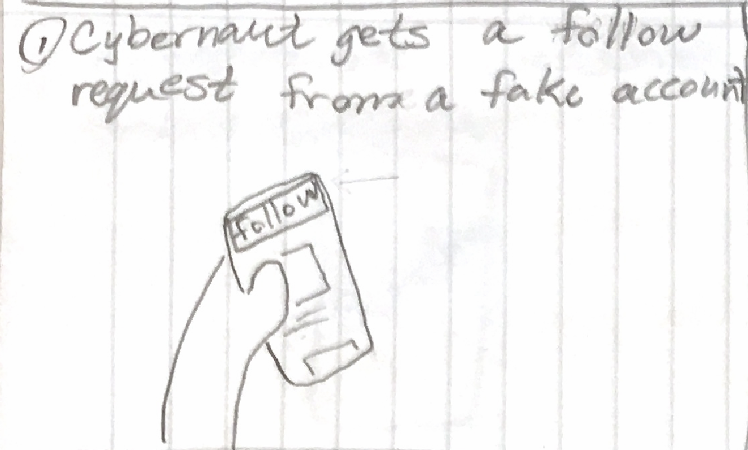 ① Cybernaut gets a follow
request from a fake account
follow